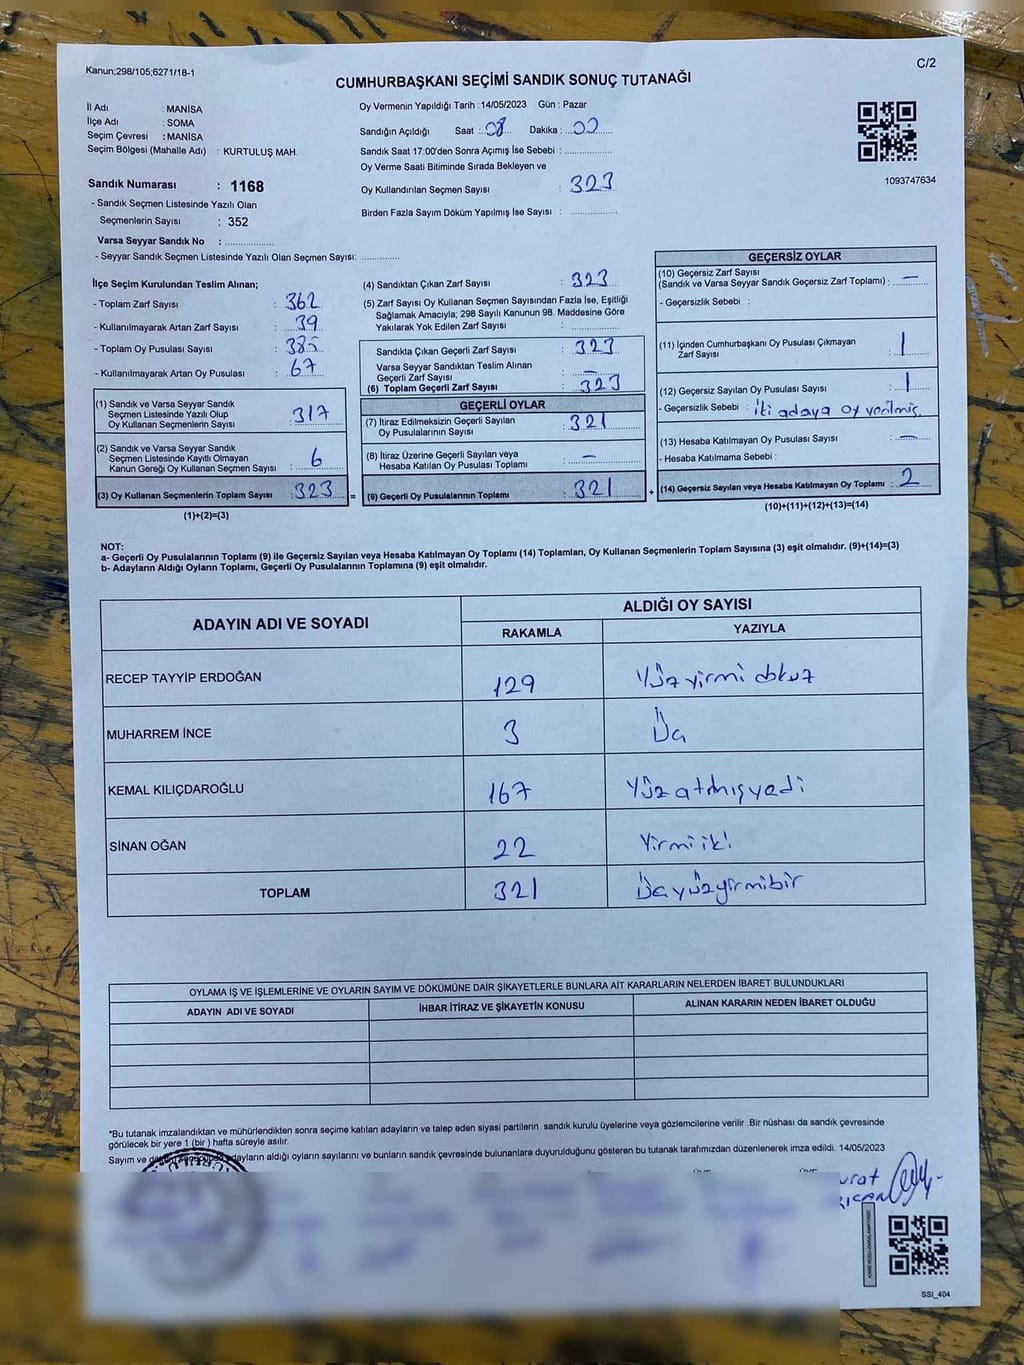 Kanun;298/105;6271/18-1
C/2
CUMHURBAŞKANI SEÇİMİ SANDIK SONUÇ TUTANAĞI
İl Adı : MANİSA
İlçe Adı : SOMA
Seçim Çevresi : MANİSA
Seçim Bölgesi (Mahalle Adı) : KURTULUŞ MAH.
Sandık Numarası : 1168
- Sandık Seçmen Listesinde Yazılı Olan
Seçmenlerin Sayısı : 352
Varsa Seyyar Sandık No : ................
- Seyyar Sandık Seçmen Listesinde Yazılı Olan Seçmen Sayısı: ............
Oy Vermenin Yapıldığı Tarih : 14/05/2023 Gün : Pazar
Sandığın Açıldığı Saat : 08 Dakika : 00
Sandık Saat 17:00'den Sonra Açımış İse Sebebi : ................
Oy Verme Saati Bitiminde Sırada Bekleyen ve
Oy Kullandırılan Seçmen Sayısı : 323
Birden Fazla Sayım Döküm Yapılmış İse Sayısı : ................
1093747634
İlçe Seçim Kurulundan Teslim Alınan;
- Toplam Zarf Sayısı : 362
- Kullanılmayarak Artan Zarf Sayısı : 39
- Toplam Oy Pusulası Sayısı : 385
- Kullanılmayarak Artan Oy Pusulası : 67
(1) Sandık ve Varsa Seyyar Sandık
Seçmen Listesinde Yazılı Olup
Oy Kullanan Seçmenlerin Sayısı : 317
(2) Sandık ve Varsa Seyyar Sandık
Seçmen Listesinde Kayıtlı Olmayan
Kanun Gereği Oy Kullanan Seçmen Sayısı : 6
(3) Oy Kullanan Seçmenlerin Toplam Sayısı : 323 =
(1)+(2)=(3)
(4) Sandıktan Çıkan Zarf Sayısı : 323
(5) Zarf Sayısı Oy Kullanan Seçmen Sayısından Fazla İse, Eşitliği
Sağlamak Amacıyla; 298 Sayılı Kanunun 98. Maddesine Göre
Yakılarak Yok Edilen Zarf Sayısı : ............
Sandıkta Çıkan Geçerli Zarf Sayısı : 323
Varsa Seyyar Sandıktan Teslim Alınan
Geçerli Zarf Sayısı : —
(6) Toplam Geçerli Zarf Sayısı : 323
GEÇERLİ OYLAR
(7) İtiraz Edilmeksizin Geçerli Sayılan
Oy Pusulalarının Sayısı : 321
(8) İtiraz Üzerine Geçerli Sayılan veya
Hesaba Katılan Oy Pusulası Toplamı : —
(9) Geçerli Oy Pusulalarının Toplamı : 321 +
GEÇERSİZ OYLAR
(10) Geçersiz Zarf Sayısı
(Sandık ve Varsa Seyyar Sandık Geçersiz Zarf Toplamı) : —
- Geçersizlik Sebebi :
(11) İçinden Cumhurbaşkanı Oy Pusulası Çıkmayan
Zarf Sayısı : 1
(12) Geçersiz Sayılan Oy Pusulası Sayısı : 1
- Geçersizlik Sebebi : İki adaya oy verilmiş.
(13) Hesaba Katılmayan Oy Pusulası Sayısı : —
- Hesaba Katılmama Sebebi :
(14) Geçersiz Sayılan veya Hesaba Katılmayan Oy Toplamı : 2
(10)+(11)+(12)+(13)=(14)
NOT:
a- Geçerli Oy Pusulalarının Toplamı (9) ile Geçersiz Sayılan veya Hesaba Katılmayan Oy Toplamı (14) Toplamları, Oy Kullanan Seçmenlerin Toplam Sayısına (3) eşit olmalıdır. (9)+(14)=(3)
b- Adayların Aldığı Oyların Toplamı, Geçerli Oy Pusulalarının Toplamına (9) eşit olmalıdır.
ADAYIN ADI VE SOYADI
ALDIĞI OY SAYISI
RAKAMLA YAZIYLA
RECEP TAYYİP ERDOĞAN 129 Yüz yirmi dokuz
MUHARREM İNCE 3 Üç
KEMAL KILIÇDAROĞLU 167 Yüz atmışyedi
SİNAN OĞAN 22 Yirmi iki
TOPLAM 321 Üç yüzyirmibir
OYLAMA İŞ VE İŞLEMLERİNE VE OYLARIN SAYIM VE DÖKÜMÜNE DAİR ŞİKAYETLERLE BUNLARA AİT KARARLARIN NELERDEN İBARET BULUNDUKLARI
ADAYIN ADI VE SOYADI İHBAR İTİRAZ VE ŞİKAYETİN KONUSU ALINAN KARARIN NEDEN İBARET OLDUĞU
*Bu tutanak imzalandıktan ve mühürlendikten sonra seçime katılan adayların ve talep eden siyasi partilerin sandık kurulu üyelerine veya gözlemcilerine verilir .Bir nüshası da sandık çevresinde
görülecek bir yere 1 (bir ) hafta süreyle asılır.
Sayım ve adayların aldığı oyların sayılarını ve bunların sandık çevresinde bulunanlara duyurulduğunu gösteren bu tutanak tarafımızdan düzenlenerek imza edildi. 14/05/2023
SSI_404